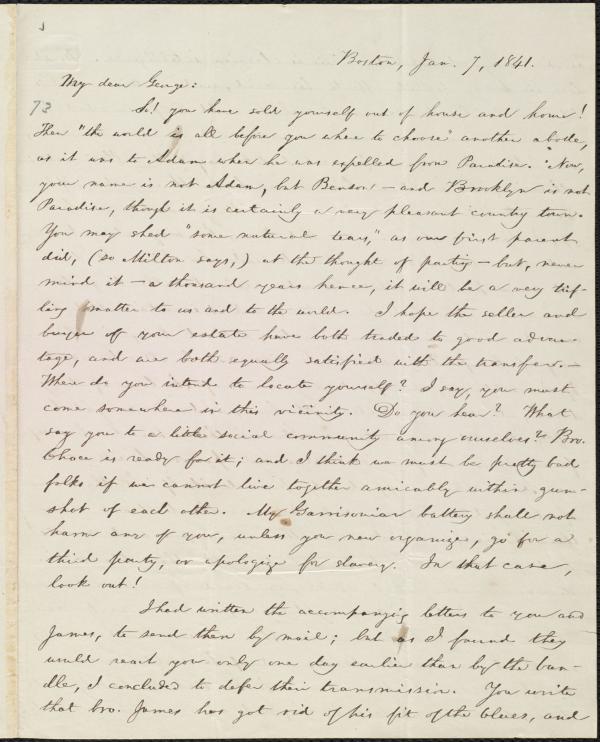 Boston, Jan. 7, 1841.
My dear George:
73
So! you have sold yourself out of house and home!
Then "the world is all before you where to choose" another abode,
as it was to Adam when he was expelled from Paradise. Now,
your name is not Adam, but Benson — and Brooklyn is not
Paradise, though it is certainly a very pleasant country town.
You may shed "some natural tears," as our first parents
did, (so Milton says,) at the thought of parting — but, never
mind it — a thousand years hence, it will be a very trif-
ling matter to us and to the world. I hope the seller and
buyer of your estate have both traded to good advan-
tage, and are both equally satisfied with the transfer. —
Where do you intend to locate yourself? I say, you must
come somewhere in this vicinity. Do you hear? What
say you to a little social community among ourselves? Bro.
Chace is ready for it; and I think we must be pretty bad
folks if we cannot live together amicably within gun-
shot of each other. My Garrisonian battery shall not
harm any of you, unless you new organize, go for a
third party, or apologize for slavery. In that case,
look out!
I had written the accompanying letters to you and
James, to send them by mail; but as I found they
would reach you only one day earlier than by the bun-
dle, I concluded to defer their transmission. You write
that bro. James has got rid of his fit of the blues, and